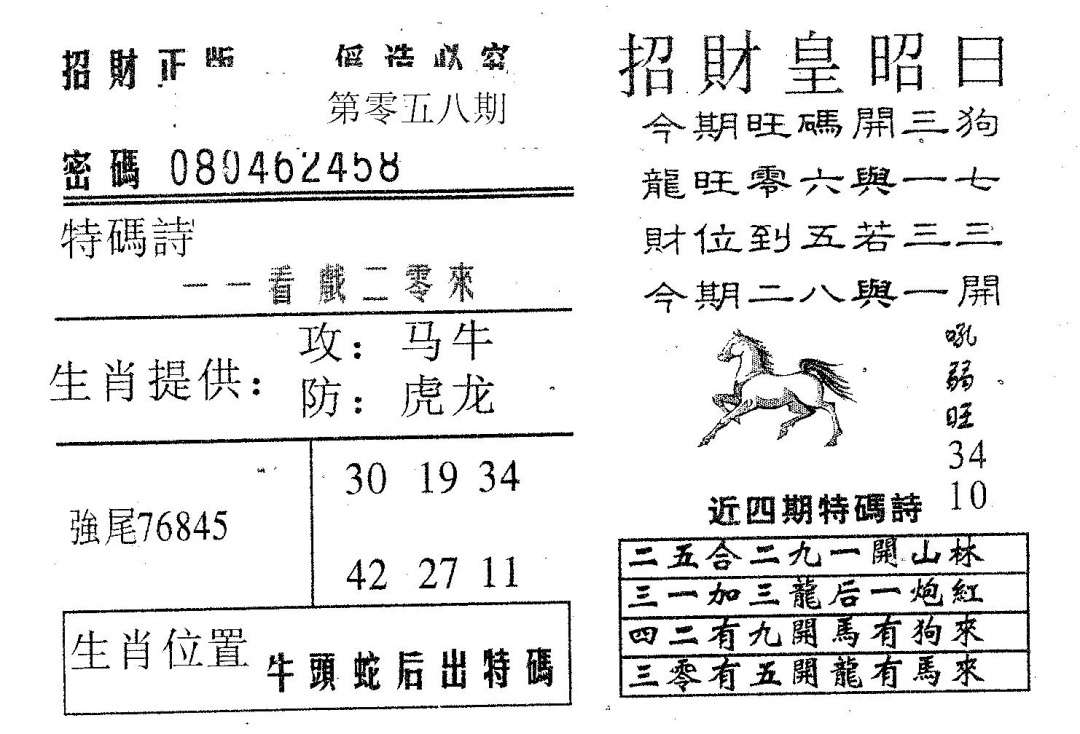 招財正版 偽造必究
第零五八期
密碼 080462458
特碼詩
一一看戲二零來
生肖提供：
攻：马牛
防：虎龙
強尾76845
30 19 34
42 27 11
生肖位置
牛頭蛇后出特碼
招財皇昭曰
今期旺碼開三狗
龍旺零六與一七
財位到五若三三
今期二八與一開
吼
弱
旺
34
10
近四期特碼詩
二五合二九一開山林
三一加三龍后一炮紅
四二有九開馬有狗來
三零有五開龍有馬來